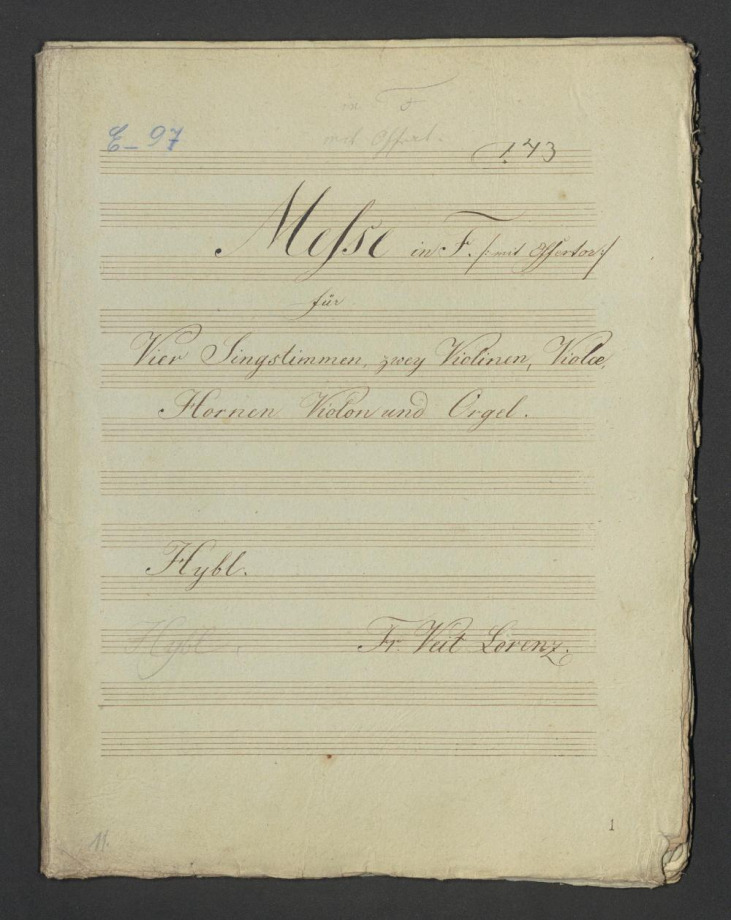 in F
mit Offert.
E–97
143
Messe in F. /: mit Offertor :/
für
Vier Singstimmen, zwey Violinen, Violæ,
Hornen Violon und Orgel.
Hybl.
Hybl.
Fr. Veit Lorenz.
11.
1